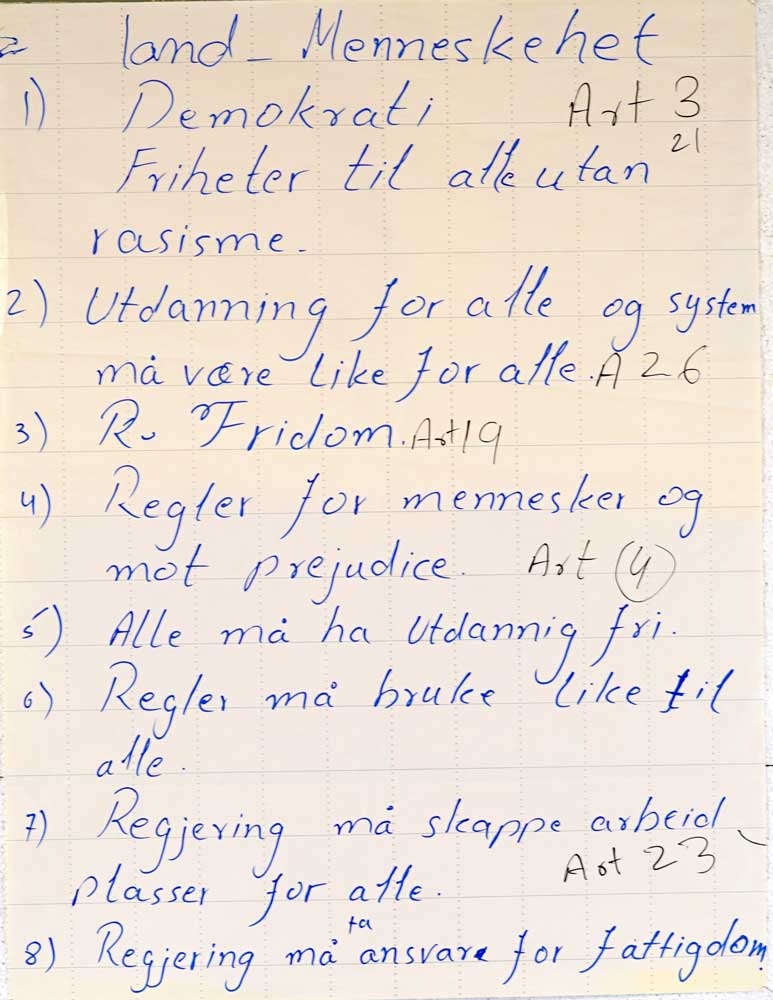 land - Menneskehet
1) Demokrati Art 3
21
Friheter til alle utan
rasisme.
2) Utdanning for alle og system
må være like for alle. A 26
3) R. Fridom. Art 19
4) Regler for mennesker og
mot prejudice. Art (4)
5) Alle må ha Utdannig fri.
6) Regler må bruke like til
alle.
7) Regjering må skappe arbeid
Art 23
plasser for alle.
ta
8) Regjering må ansvare for fattigdom.